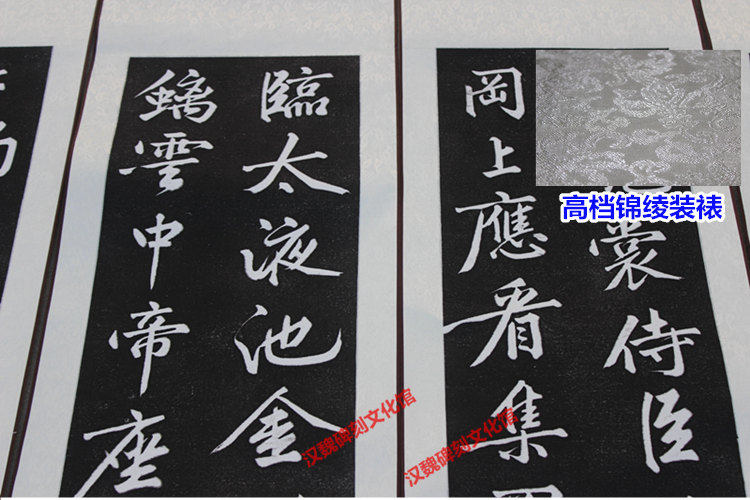 囊侍臣
岡上應看集
臨太液池金
螭雲中帝座
高档锦绫装裱
汉魏碑刻文化馆
汉魏碑刻文化馆